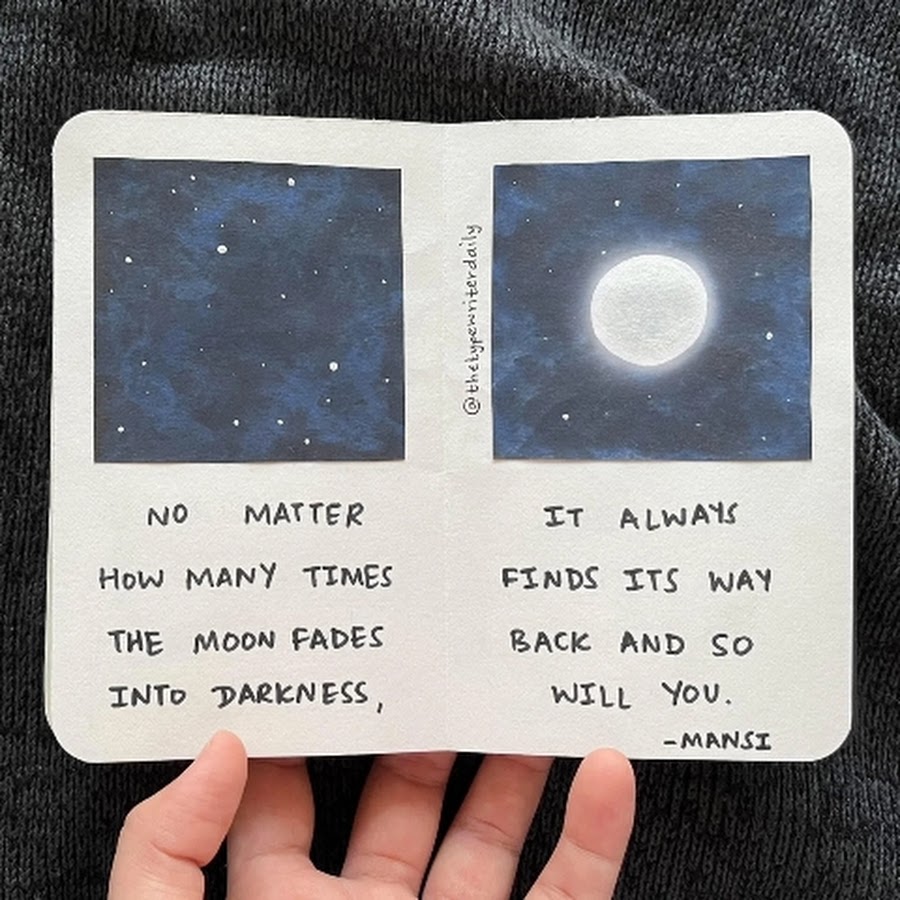 NO MATTER
HOW MANY TIMES
THE MOON FADES
INTO DARKNESS,
@thetypewriterdaily
IT ALWAYS
FINDS ITS WAY
BACK AND SO
WILL YOU.
-MANSI